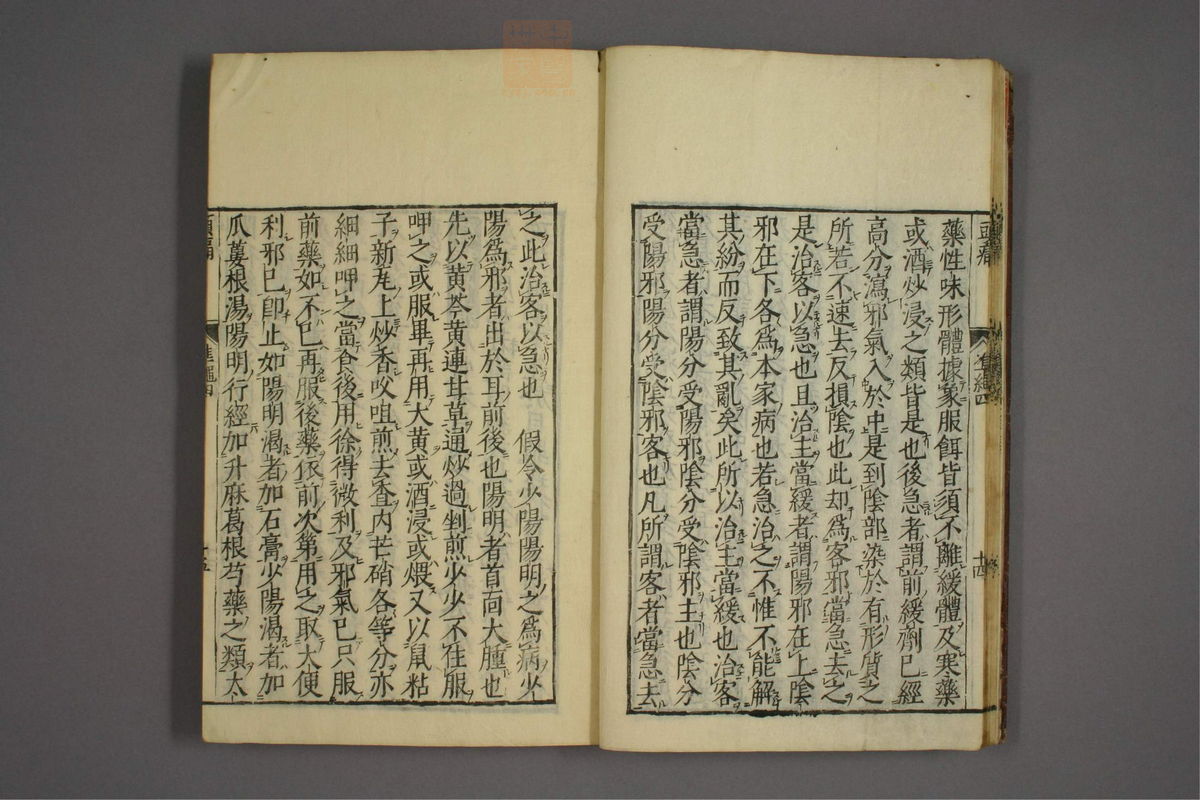 藥性味形體據象服餌皆須不離緩體及寒藥
或酒炒浸之類皆是也後急者謂前緩劑已經
高分瀉邪氣入於中是到陰部染於有形質之
所若不速去反損陰也此却爲客邪當急去之
是治客以急也且治主當緩者謂陽邪在上陰
邪在下各爲本家病也若急治之不惟不能解
其紛而反致其亂矣此所以治主當緩也治客
當急者謂陽分受陽邪陰分受陰邪主也陰分
受陽邪陽分受陰邪客也凡所謂客者當急去
之此治客以急也　假令少陽陽明之爲病少
陽爲邪者出於耳前後也陽明者首面大腫也
先以黄芩黄連甘草通炒過剉煎少少不住服
呷之或服畢再用大黄或酒浸或煨又以鼠粘
子新瓦上炒香㕮咀煎去査内芒硝各等分亦
細細呷之當食後用徐得微利及邪氣已只服
前藥如不已再服後藥依前次第用之取大便
利邪已卽止如陽明渇者加石膏少陽渇者加
瓜蔞根湯陽明行經加升麻葛根芍藥之類太